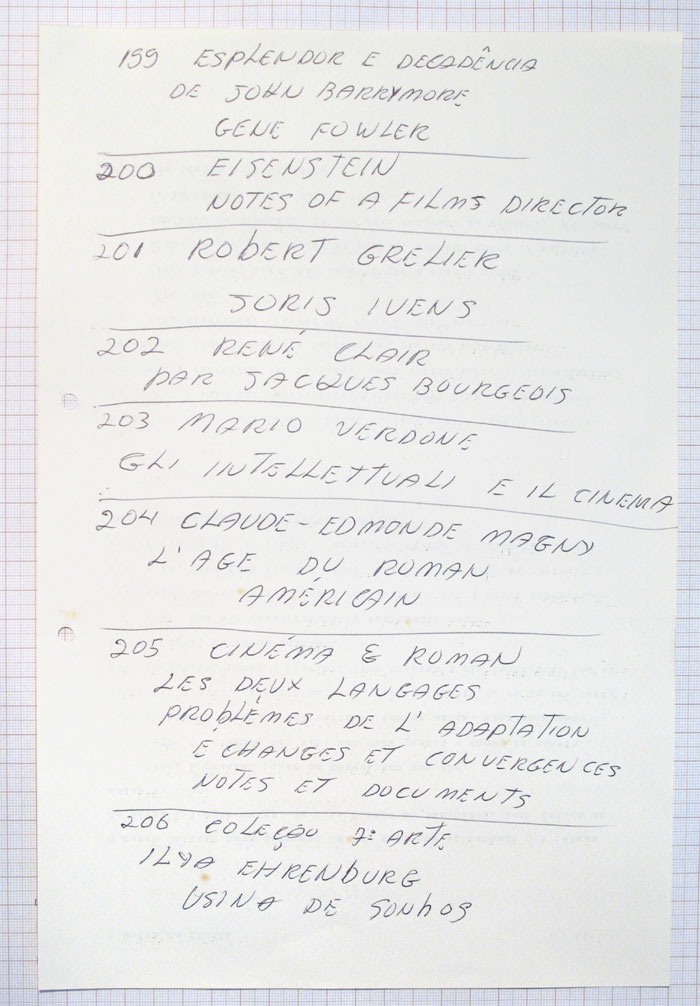 199 ESPLENDOR E DECADÊNCIA
DE JOHN BARRYMORE
GENE FOWLER
200 EISENSTEIN
NOTES OF A FILMS DIRECTOR
201 ROBERT GRELIER
JORIS IVENS
202 RENÉ CLAIR
PAR JACQUES BOURGEOIS
203 MARIO VERDONE
GLI INTELLETTUALI E IL CINEMA
204 CLAUDE-EDMONDE MAGNY
L'AGE DU ROMAN
AMÉRICAIN
205 CINÉMA & ROMAN
LES DEUX LANGAGES
PROBLÈMES DE L'ADAPTATION
ÉCHANGES ET CONVERGENCES
NOTES ET DOCUMENTS
206 COLEÇÃO 7ª ARTE
ILYA EHRENBURG
USINA DE SONHOS